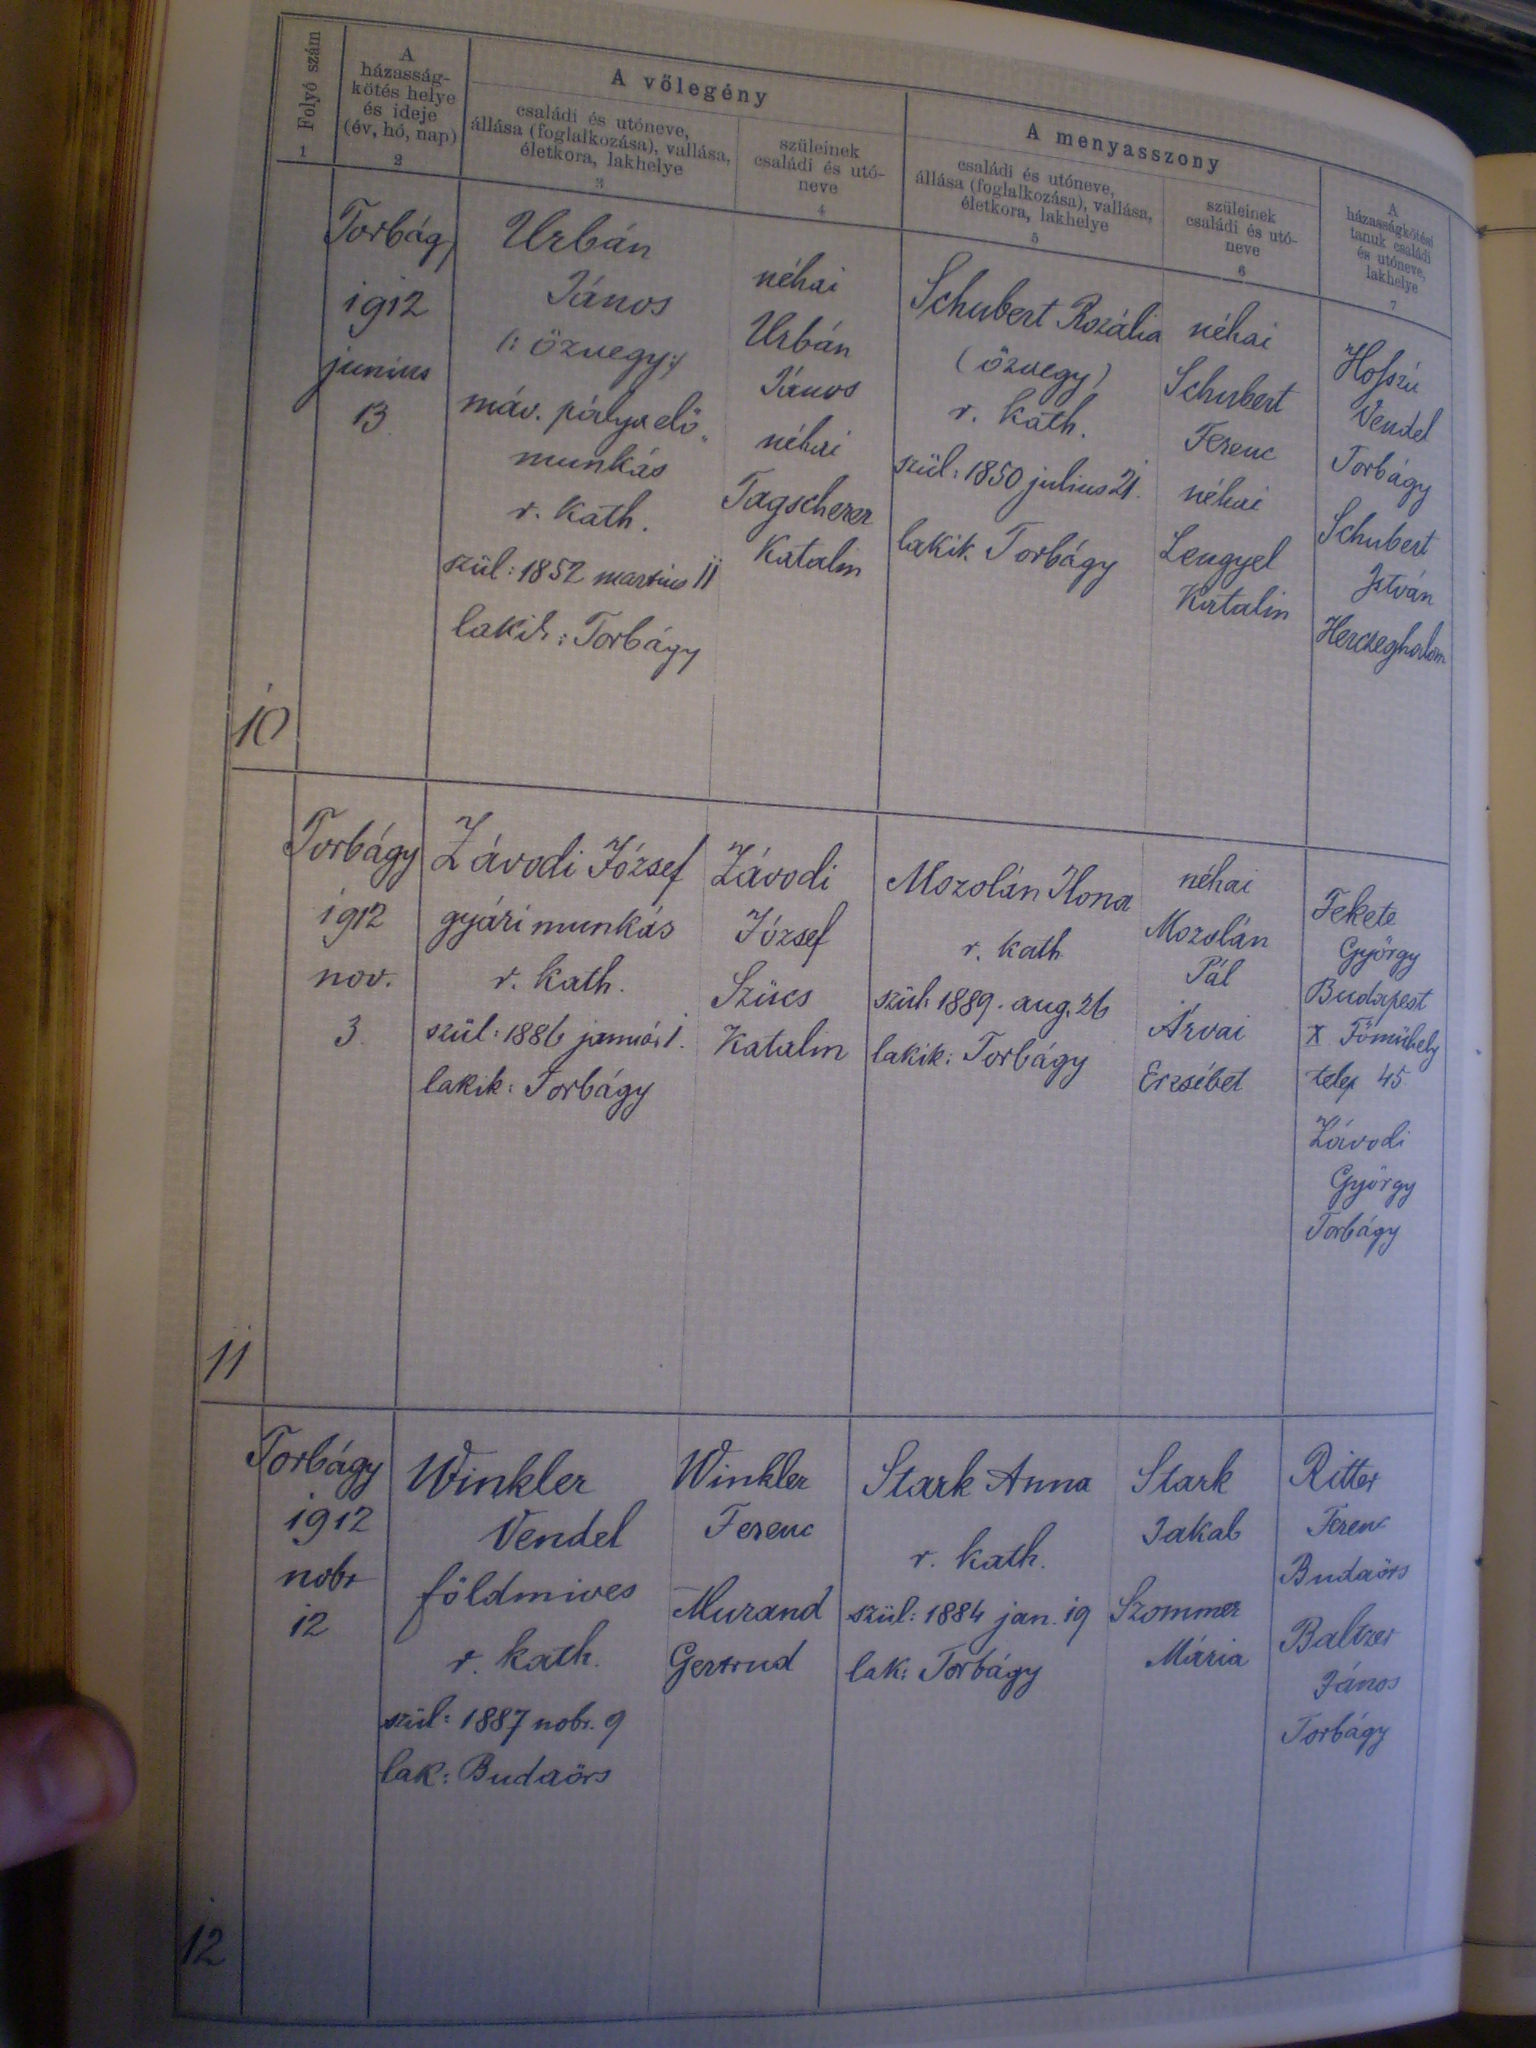 Folyó szám
1
A
házasság-
kötés helye
és ideje
(év, hó, nap)
2
A vőlegény
családi és utóneve,
állása (foglalkozása), vallása,
életkora, lakhelye
3
szüleinek
családi és utó-
neve
4
A menyasszony
családi és utóneve,
állása (foglalkozása), vallása,
életkora, lakhelye
5
szüleinek
családi és utó-
neve
6
A
házasságkötési
tanuk családi
és utóneve,
lakhelye
7
10
Torbágy
1912
junius
13
Urbán
János
(: özvegy :)
máv. pálya elő„
munkás
r. kath.
szül: 1852 martius 11
lakik: Torbágy
néhai
Urbán
János
néhai
Tagscherer
Katalin
Schubert Rozália
(özvegy)
r. kath.
szül: 1850 julius 21.
lakik Torbágy
néhai
Schubert
Ferenc
néhai
Lengyel
Katalin
Hosszú
Vendel
Torbágy
Schubert
István
Herczeghalom
11
Torbágy
1912
nov.
3.
Závodi József
gyári munkás
r. kath.
szül: 1886 január 1.
lakik: Torbágy
Závodi
József
Szücs
Katalin
Mozolán Ilona
r. kath
szül: 1889. aug. 26
lakik: Torbágy
néhai
Mozolán
Pál
Árvai
Erzsébet
Fekete
György
Budapest
X Főműhely
telep 45
Závodi
György
Torbágy
12
Torbágy
1912
nobr
12
Winkler
Vendel
földmives
r. kath.
szül: 1887 nobr. 9
lak: Budaörs
Winkler
Ferenc
Murand
Gertrud
Stark Anna
r. kath.
szül: 1884 jan. 19
lak: Torbágy
Stark
Jakab
Szommer
Mária
Ritter
Ferenc
Budaörs
Baltzer
János
Torbágy